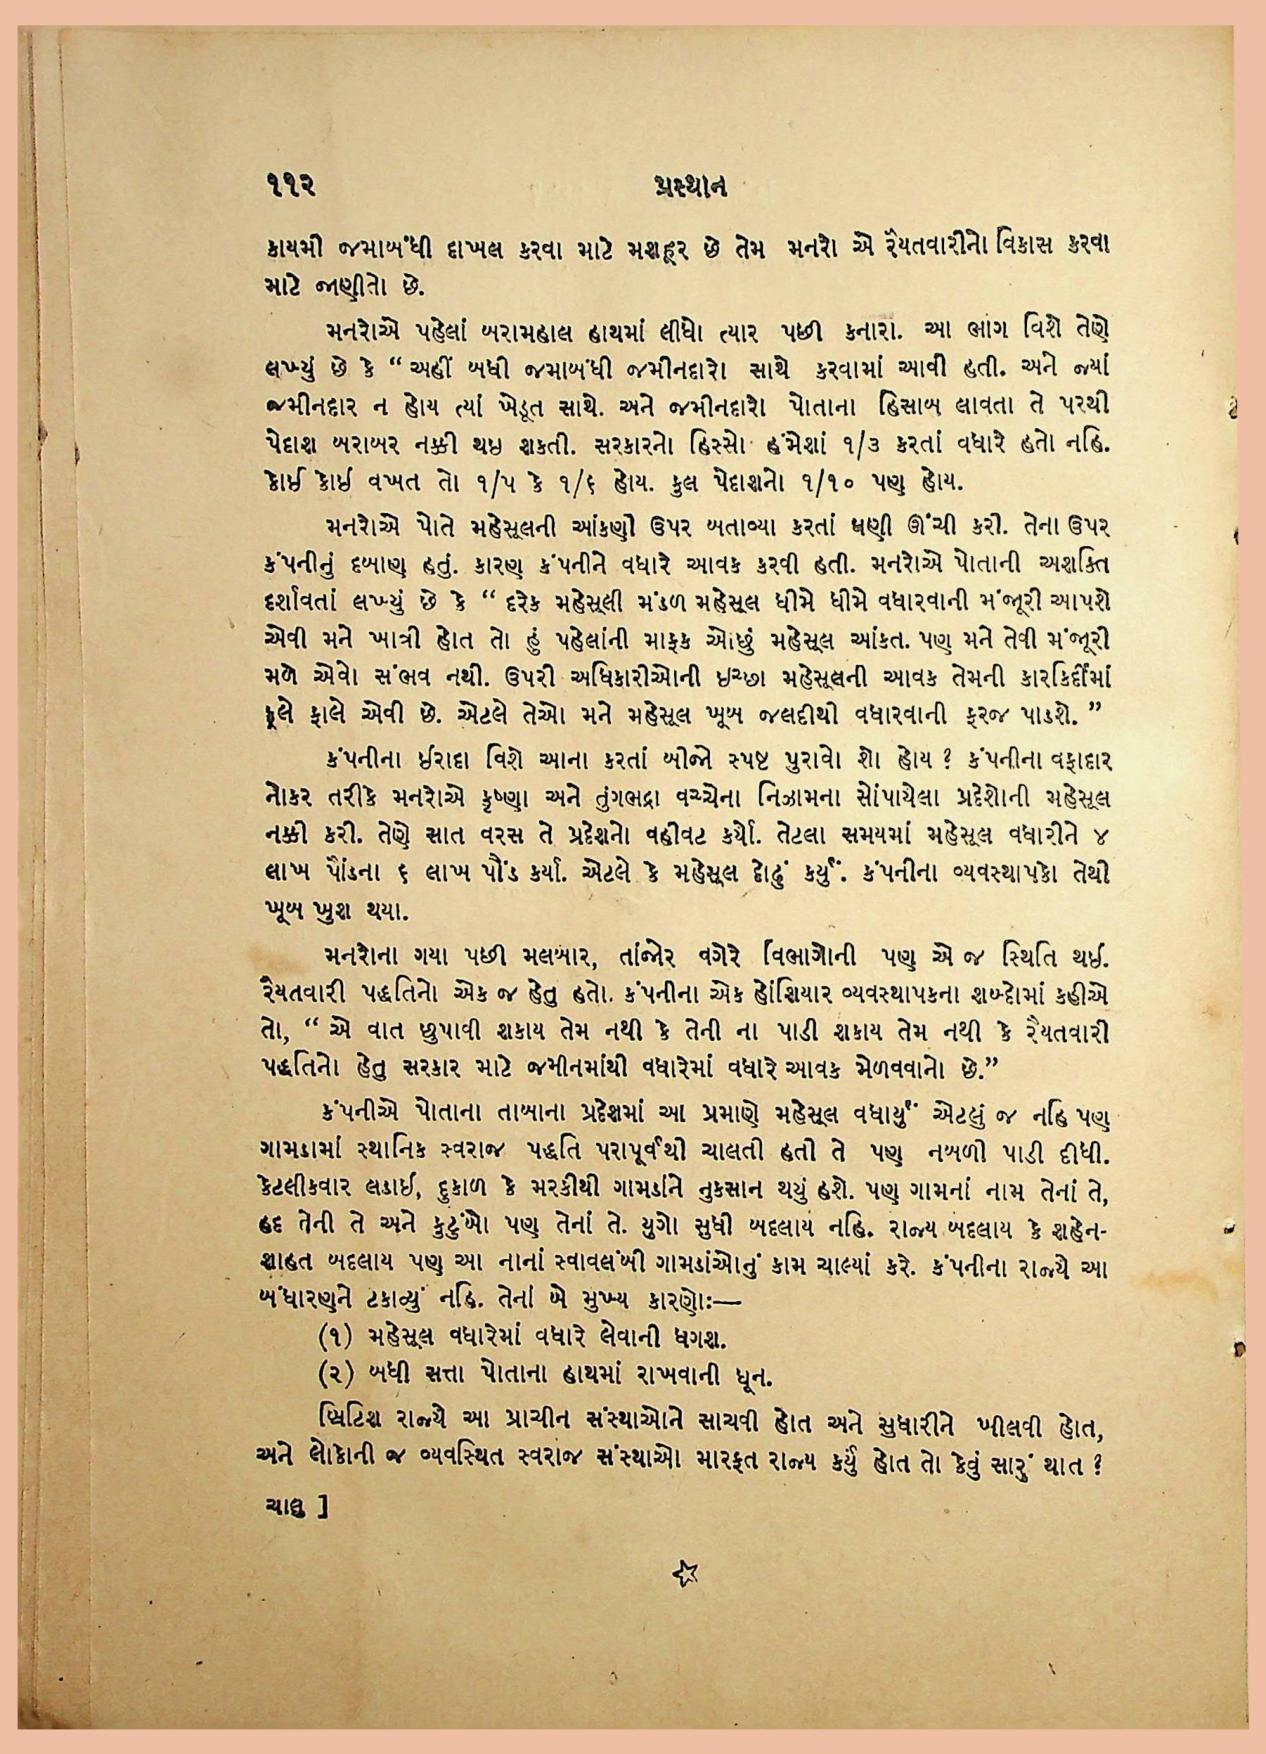 ૧૧૨ પ્રસ્થાન
કાયમી જમાબંધી દાખલ કરવા માટે મશહૂર છે તેમ મનરો એ રૈયતવારીનો વિકાસ કરવા
માટે જાણીતો છે.
મનરોએ પહેલાં બરામહાલ હાથમાં લીધો ત્યાર પછી કનારા. આ ભાગ વિશે તેણે
લખ્યું છે કે “ અહીં બધી જમાબંધી જમીનદારો સાથે કરવામાં આવી હતી. અને જ્યાં
જમીનદાર ન હોય ત્યાં ખેડૂત સાથે. અને જમીનદારો પોતાના હિસાબ લાવતા તે પરથી
પેદાશ બરાબર નક્કી થઇ શકતી. સરકારનો હિસ્સો હંમેશાં ૧/૩ કરતાં વધારે હતો નહિ.
કોઈ કોઈ વખત તો ૧/૫ કે ૧/૬ હોય. કુલ પેદાશનો ૧/૧૦ પણ હોય.
મનરોએ પોતે મહેસૂલની આંકણી ઉપર બતાવ્યા કરતાં ઘણી ઊંચી કરી. તેના ઉપર
કંપનીનું દબાણ હતું. કારણ કંપનીને વધારે આવક કરવી હતી. મનરોએ પોતાની અશક્તિ
દર્શાવતાં લખ્યું છે કે “ દરેક મહેસૂલી મંડળ મહેસૂલ ધીમે ધીમે વધારવાની મંજૂરી આપશે
એવી મને ખાત્રી હોત તો હું પહેલાંની માફક ઓછું મહેસૂલ આંકત. પણ મને તેવી મંજૂરી
મળે એવો સંભવ નથી. ઉપરી અધિકારીઓની ઇચ્છા મહેસૂલની આવક તેમની કારકિર્દીમાં
ફૂલે ફાલે એવી છે. એટલે તેઓ મને મહેસૂલ ખૂબ જલદીથી વધારવાની ફરજ પાડશે. ”
કંપનીના ઈરાદા વિશે આના કરતાં બીજો સ્પષ્ટ પુરાવો શો હોય ? કંપનીના વફાદાર
નોકર તરીકે મનરોએ કૃષ્ણા અને તુંગભદ્રા વચ્ચેના નિઝામના સોંપાયેલા પ્રદેશોની મહેસૂલ
નક્કી કરી. તેણે સાત વરસ તે પ્રદેશનો વહીવટ કર્યો. તેટલા સમયમાં મહેસૂલ વધારીને ૪
લાખ પૌંડના ૬ લાખ પૌંડ કર્યા. એટલે કે મહેસૂલ દોઢું કર્યું. કંપનીના વ્યવસ્થાપકો તેથી
ખૂબ ખુશ થયા.
મનરોના ગયા પછી મલબાર, તાંજોર વગેરે વિભાગોની પણ એ જ સ્થિતિ થઇ.
રૈયતવારી પદ્ધતિનો એક જ હેતુ હતો. કંપનીના એક હોંશિયાર વ્યવસ્થાપકના શબ્દોમાં કહીએ
તો, “ એ વાત છુપાવી શકાય તેમ નથી કે તેની ના પાડી શકાય તેમ નથી કે રૈયતવારી
પદ્ધતિનો હેતુ સરકાર માટે જમીનમાંથી વધારેમાં વધારે આવક મેળવવાનો છે.”
કંપનીએ પોતાના તાબાના પ્રદેશમાં આ પ્રમાણે મહેસૂલ વધાર્યું એટલું જ નહિ પણ
ગામડામાં સ્થાનિક સ્વરાજ પદ્ધતિ પરાપૂર્વથી ચાલતી હતી તે પણ નબળી પાડી દીધી.
કેટલીકવાર લડાઇ, દુકાળ કે મરકીથી ગામડાંને નુકસાન થયું હશે. પણ ગામનાં નામ તેનાં તે,
હદ તેની તે અને કુટુંબો પણ તેનાં તે. યુગો સુધી બદલાય નહિ. રાજ્ય બદલાય કે શહેન-
શાહત બદલાય પણ આ નાનાં સ્વાવલંબી ગામડાંઓનું કામ ચાલ્યાં કરે. કંપનીના રાજ્યે આ
બંધારણને ટકાવ્યું નહિ. તેનાં બે મુખ્ય કારણોઃ—
(૧) મહેસૂલ વધારેમાં વધારે લેવાની ધગશ.
(૨) બધી સત્તા પોતાના હાથમાં રાખવાની ધૂન.
બ્રિટિશ રાજ્યે આ પ્રાચીન સંસ્થાઓને સાચવી હોત અને સુધારીને ખીલવી હોત,
અને લોકોની જ વ્યવસ્થિત સ્વરાજ સંસ્થાઓ મારફત રાજ્ય કર્યું હોત તો કેવું સારું થાત ?
ચાલુ ]